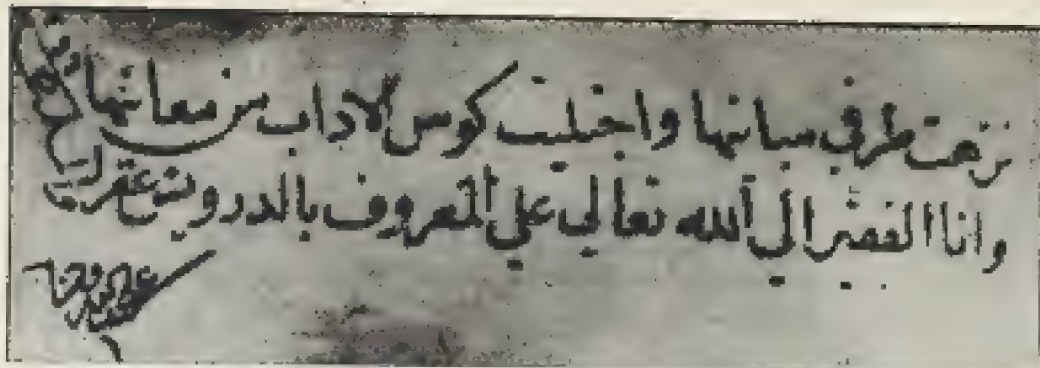 نزهت طرفي مبانيها واجتليت كوس الاداب من معانيها
وانا الفقير الي الله تعالي علي المعروف بالدرويش